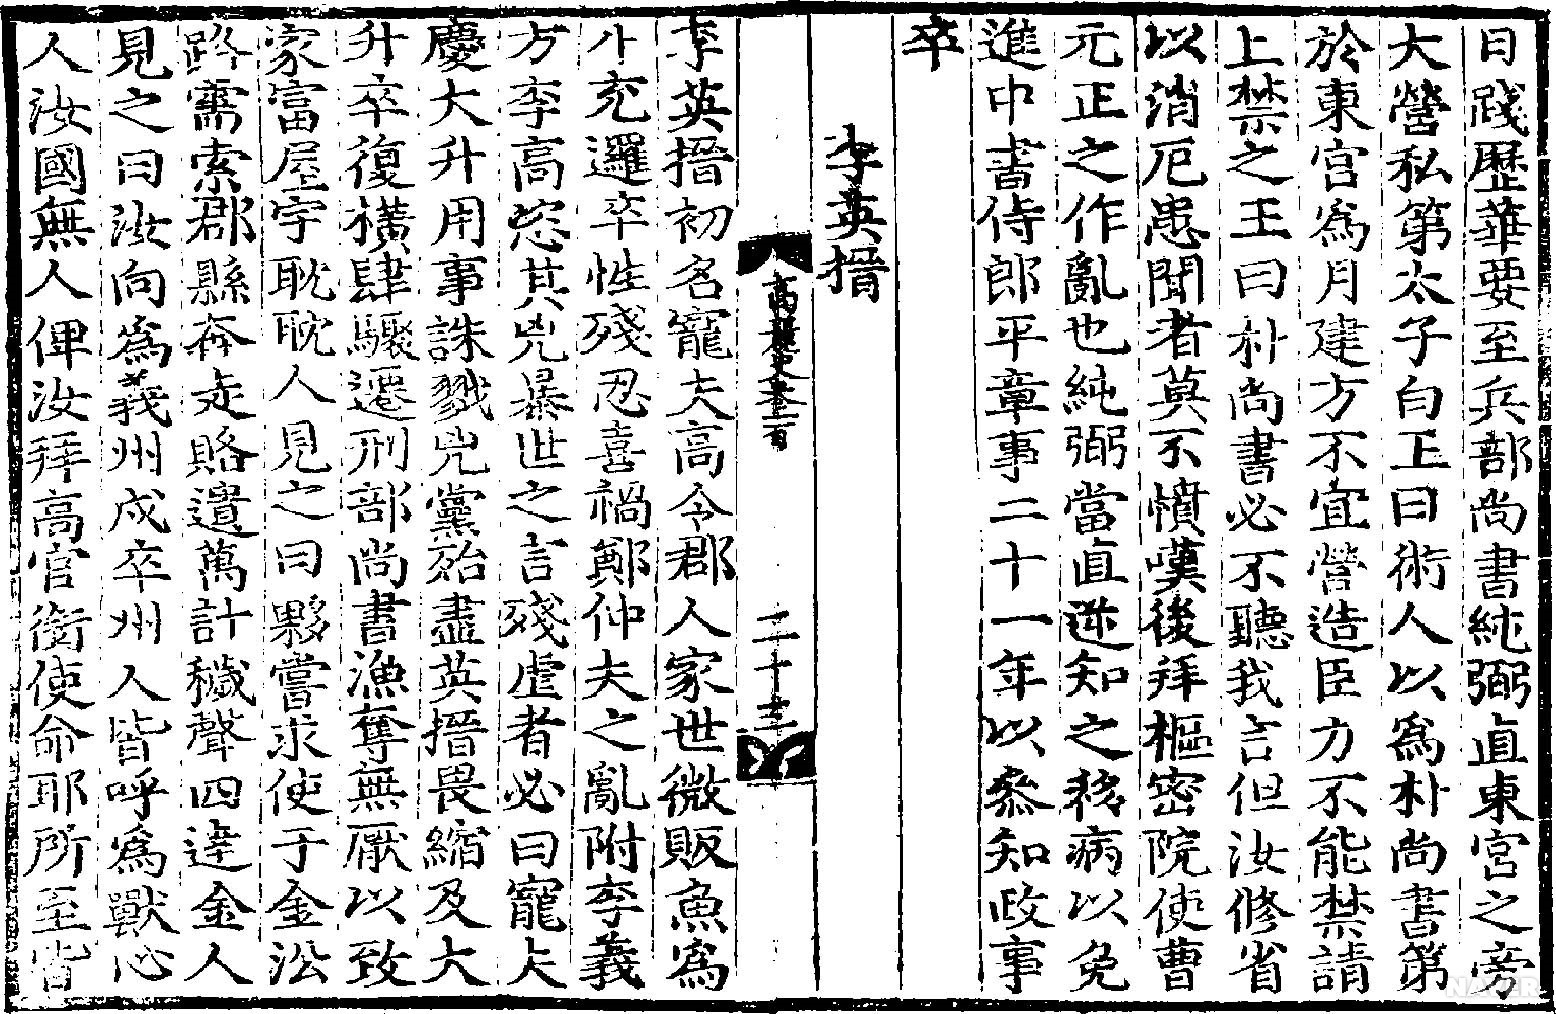 日踐歷華要至兵部尚書純弼直東宮之旁
大營私第太子白王曰術人以爲朴尚書第
於東宮爲月建方不宜營造臣力不能禁請
上禁之王曰朴尚書必不聽我言但汝修省
以消厄患聞者莫不憤嘆後拜樞密院使曹
元正之作亂也純弼當直逆知之移病以免
進中書侍郎平章事二十一年以叅知政事
卒
李英搢
高麗史卷一百
二十三
李英搢初名寵夫高令郡人家世微販魚爲
业充邏卒性殘忍喜禍鄭仲夫之亂附李義
方李高恣其兇暴世之言殘虐者必曰寵夫
慶大升用事誅戮兇黨殆盡英搢畏縮及大
升卒復橫肆驟遷刑部尚書漁奪無厭以致
家富屋宇耽耽人見之曰夥嘗求使于金公
路需索郡縣奔走賂遺萬計穢聲四達金人
見之曰汝向爲義州戍卒州人皆呼爲獸心
人汝國無人俾汝拜高官銜使命耶所至皆
NAVER